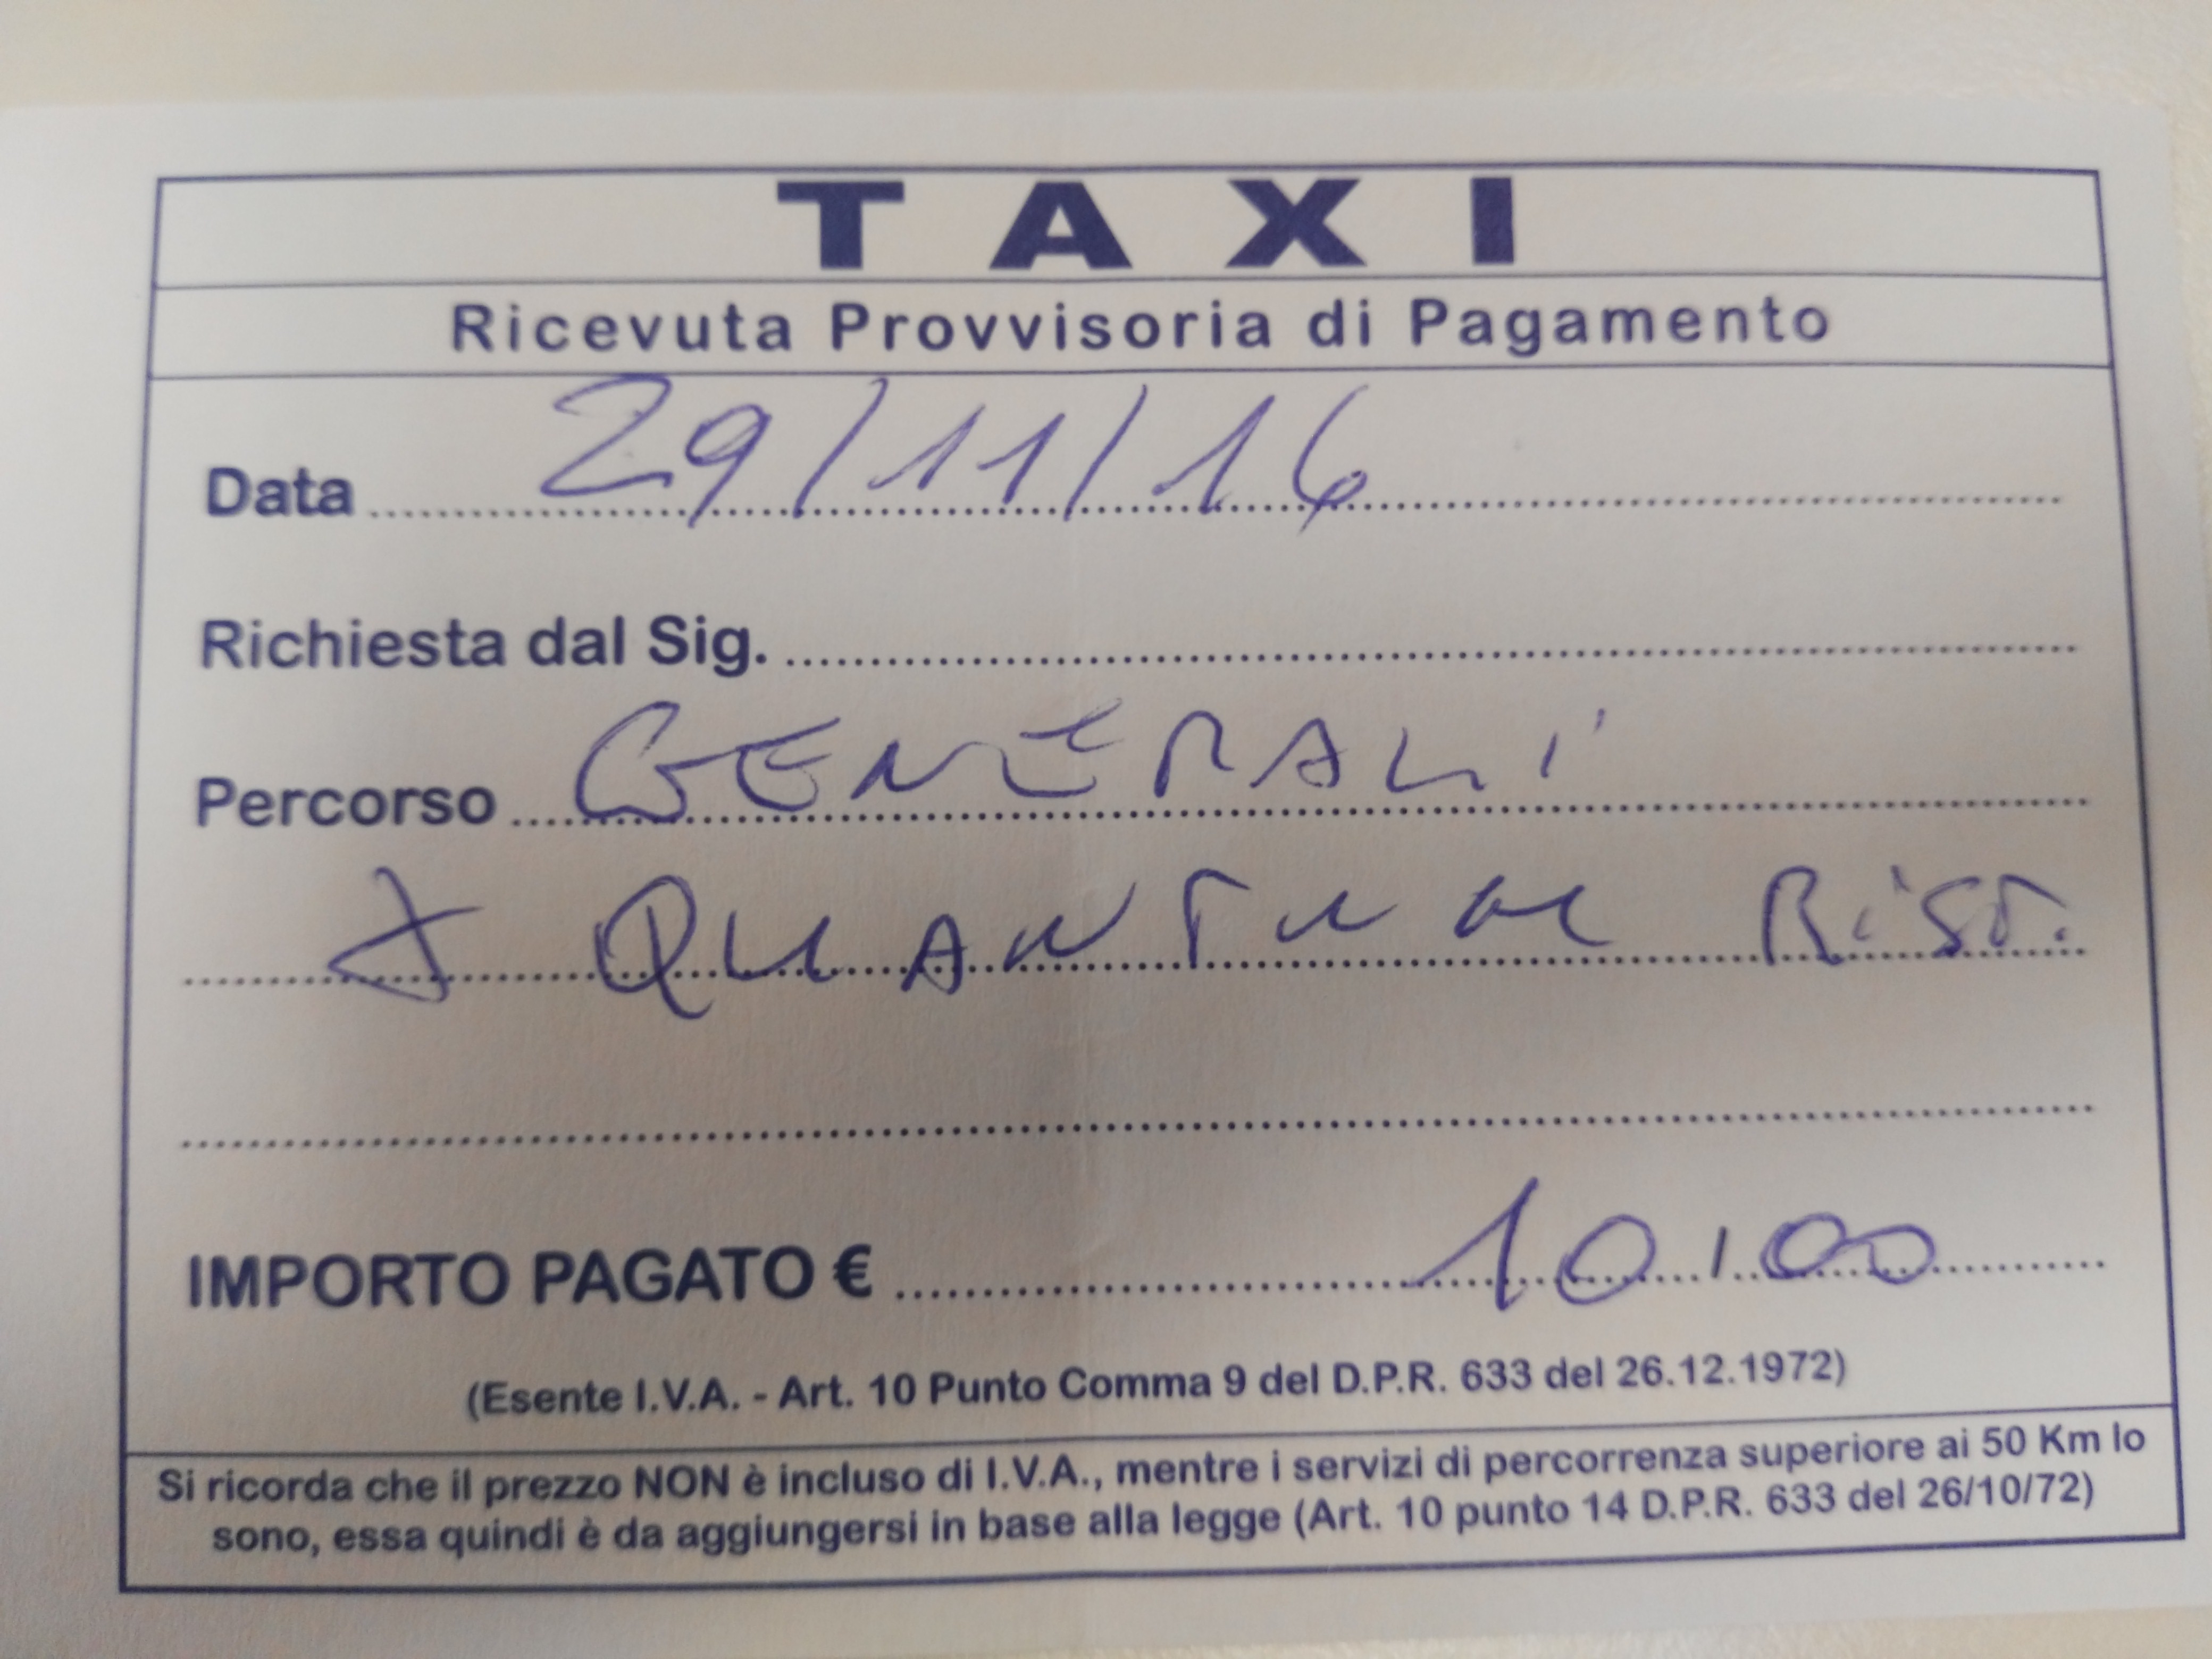 TAXI
Ricevuta Provvisoria di Pagamento
Data 29/11/16
Richiesta dal Sig.
Percorso GENERALI
X QUANTUM RIST.
IMPORTO PAGATO € 10,00
(Esente I.V.A. - Art. 10 Punto Comma 9 del D.P.R. 633 del 26.12.1972)
Si ricorda che il prezzo NON è incluso di I.V.A., mentre i servizi di percorrenza superiore ai 50 Km lo
sono, essa quindi è da aggiungersi in base alla legge (Art. 10 punto 14 D.P.R. 633 del 26/10/72)